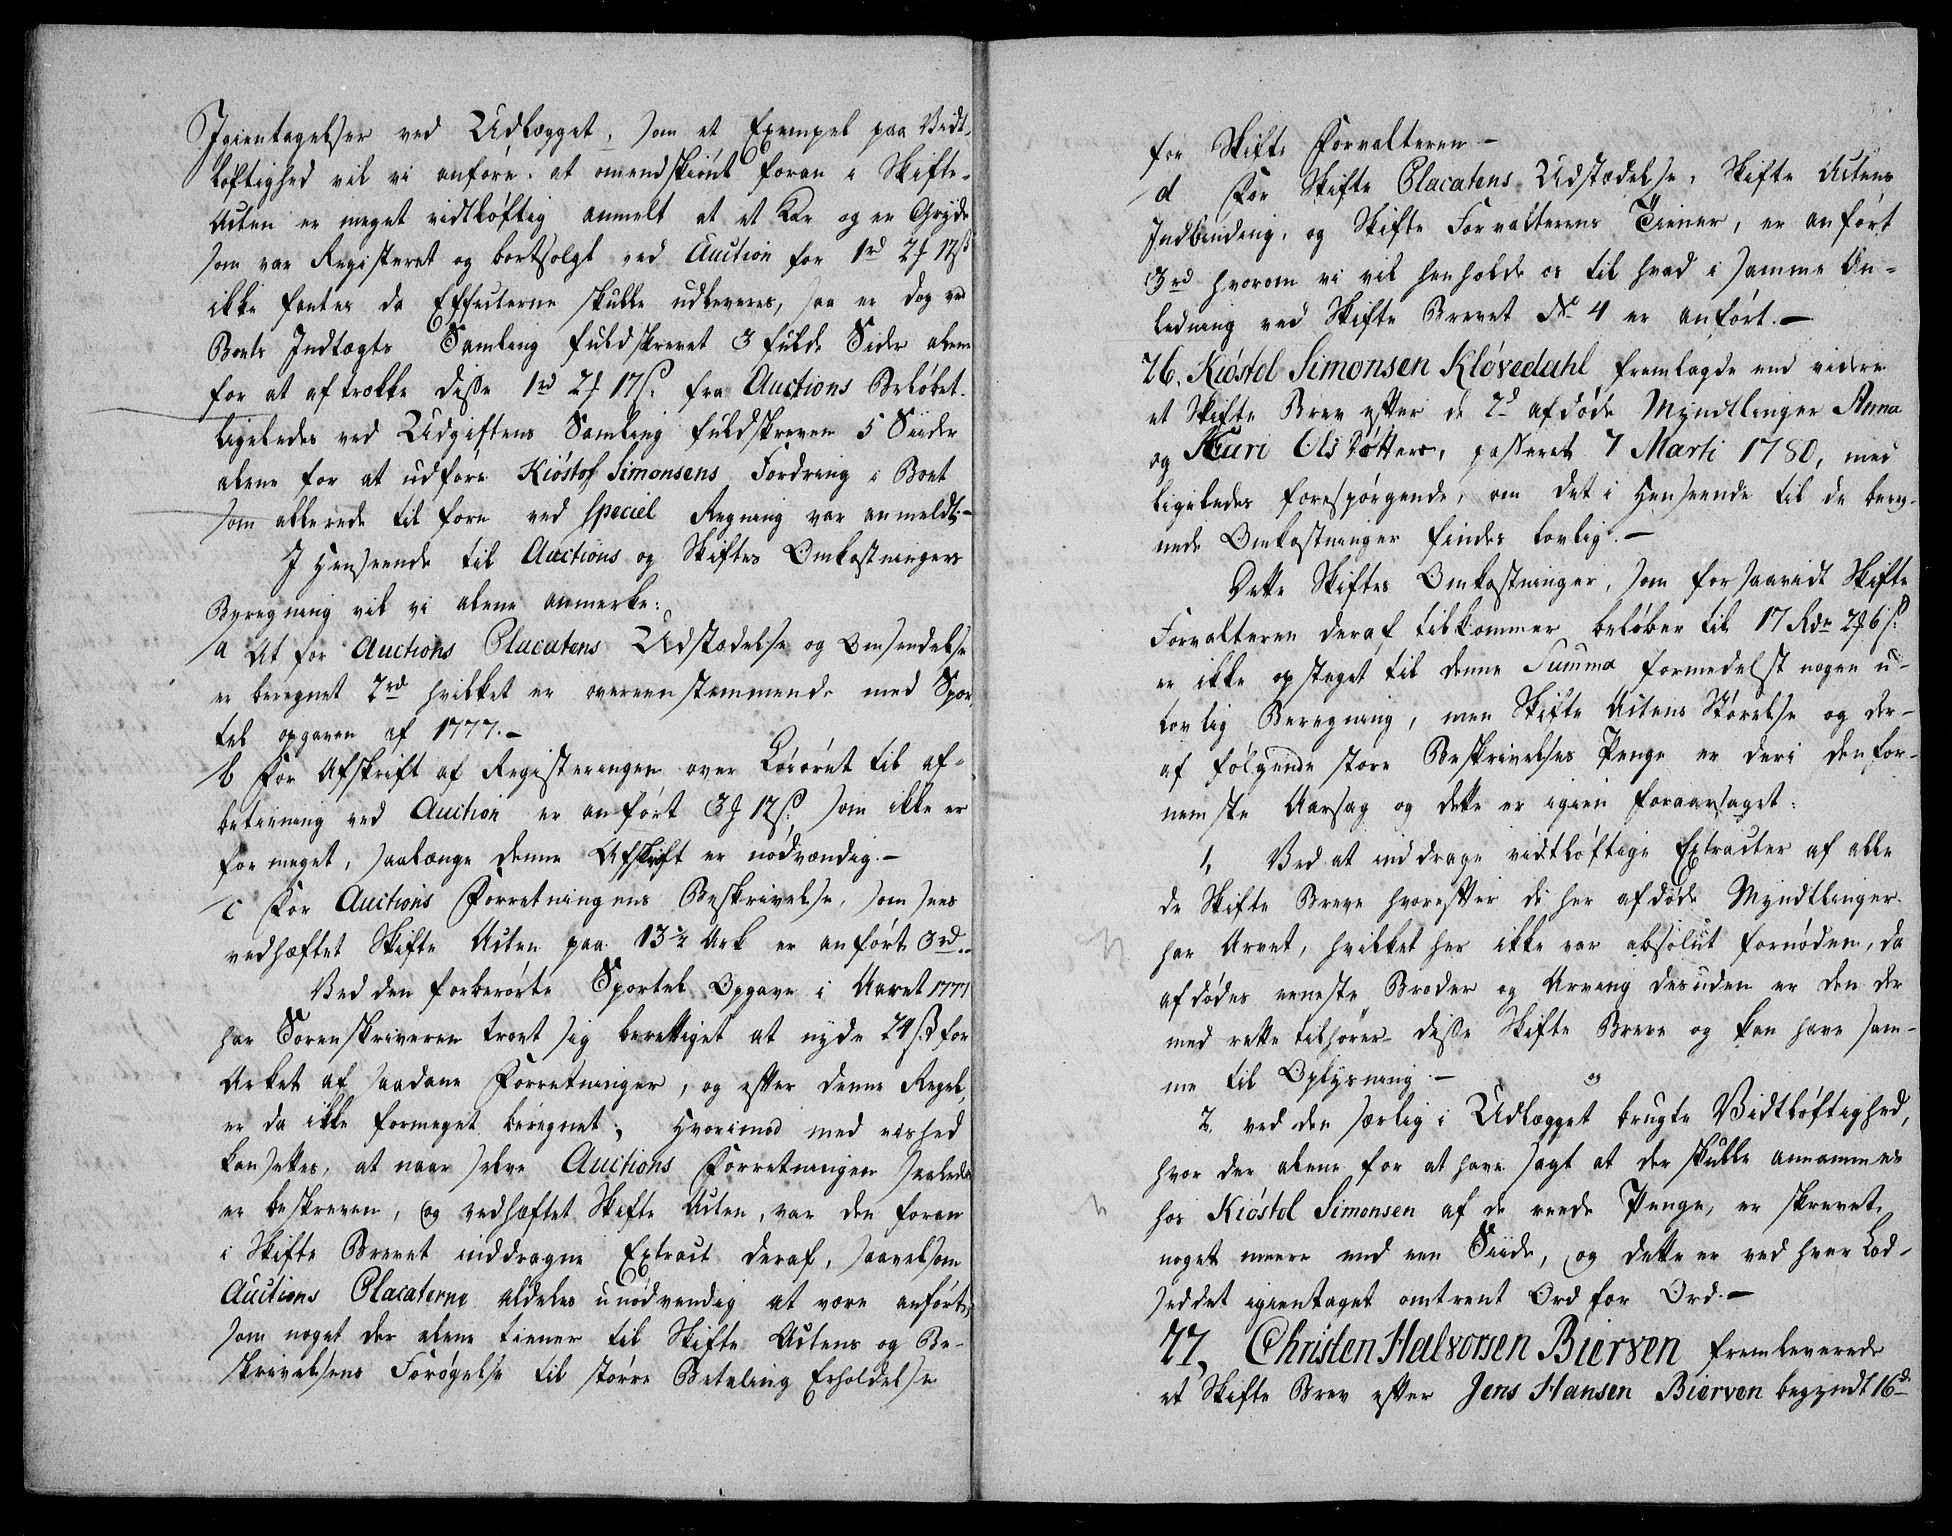 Igientagelser ved Udlægget, som et Exempel paa Vidt-
løftighed vil vi anføre: at omendskiönt foran i Skifte-
Acten er meget vidtløftig anmelt at et Kar og en Gryde
som var Registeret og bortsolgt ved Auction for 1rd 2f 17ß
ikke fantes da Effecterne skulle udleveres, saa er dog ved
Boets Indtægts Samling fuldskrevet 3 fulde Sider alene
for at aftrække disse 1rd 2f 17ß. fra Auctions Beløbet.
ligeledes ved Udgiftens Samling fuldskreven 5 Siider
alene for at udføre Kiöstof Simonsens Fordring i Boet
som allerede til forn ved speciel Regning var anmeldt.-
I Henseende til Auctions og Skiftes Omkostningers
Beregning vil vi alene anmerke:
a At for Auctions Placatens Udstædelse og Omsendelse
er beregnet 2rd hvilket er overeenstemmende med Spor-
tel opgaven af 1777.-
b For Afskrift af Registeringen over Løsøret til af-
betiening ved Auction er anført 3f 12ß. som ikke er
for meget, saalænge denne Afskrift er nødvændig.-
c For Auctions Forretningens Beskrivelse, som sees
vedhæftet Skifte Acten paa 13½ Ark er anført 3rd..
Ved den forberørte Sportel Opgave i Aaret 1777
har Sorenskriveren troet sig berettiget at nyde 24ß. for
Arket af saadane Forretninger, og efter denne Regel,
er da ikke formeget beregnet; Hvorimod med vished
kan settes, at naar selve Auctions Forretningen saaledes
er beskreven, og vedhæftet Skifte Acten, var den foran
i Skifte Brevet inddragne Extract deraf, saavelsom
Auctions Placaterne aldeles unødvendig at være anført,
som noget der alene tiener til Skifte Actens og Be-
skrivelsens Forøgelse til større Betaling Erholdelse
for Skifte Forvalteren -
d For Skifte Placatens Udstædelse, Skifte Actens
Indbinding, og Skifte Forvalterens Tiener, er anført
3rd hvorom vi vil henholde os til hvad i samme An-
ledning ved Skifte Brevet No 4 er anført.-
76. Kiöstol Simonsen Klövedahl fremlagde end videre
et Skifte Brev efter de 2d afdøde Myndtlinger Anna
og Kari Ols Døttere, passeret 7 Marti 1780, med
ligeledes forespørgende, om det i Henseende til de bereg-
nede Omkostninger findes lovlig.-
Dette Skiftes Omkostninger, som forsaavidt Skifte
Forvalteren deraf tilkommer beløber til 17 Rdr 2f 6ß.
er ikke opsteget til denne Summa formedelst nogen u-
lovlig Beregning, men Skifte Actens Størelse og der-
af følgende store Beskrivelses Penge er deri den for-
nemste Aarsag og dette er igien foraarsaget:
1, Ved at inddrage vidtløftige Extracter af alle
de Skifte Breve hvorefter de her afdøde Myndtlinger
har Arvet, hvilket her ikke var absolut fornøden, da
afdødes eeneste Broder og Arving desuden er den der
med rette tilhører disse Skifte Breve og kan have sam-
me til Oplysning.- og
2. ved den særlig i Udlægget brugte Vidtløftighed,
hvor der alene for at have sagt at der skulle annammes
hos Kiöstol Simonsen af de reede Penge, er skrevet
noget meere end een Siide, og dette er ved hver Lod-
seddel igientaget omtrent Ord for Ord.-
77, Christen Halvorsen Bierven fremleverede
et Skifte Brev efter Jens Hansen Bierven begyndt 16d